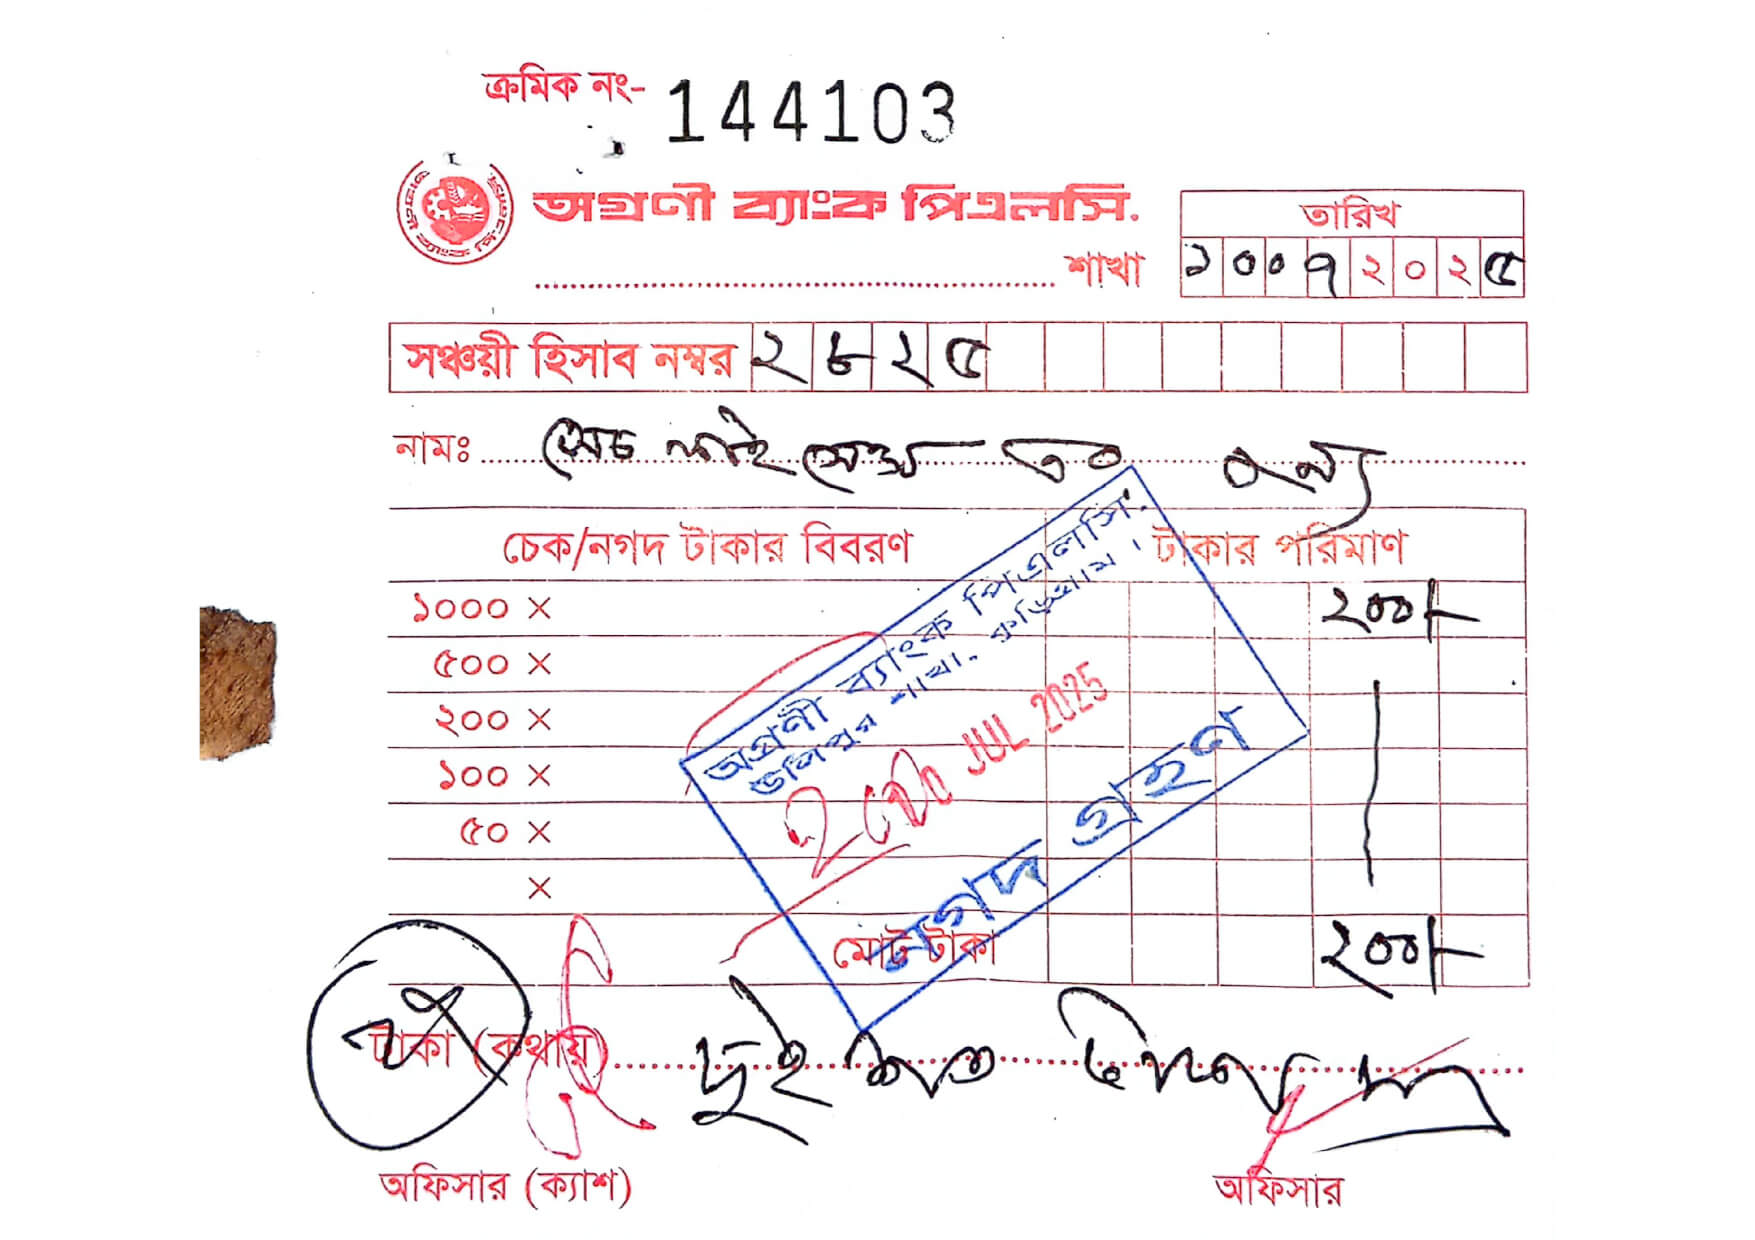 ক্রমিক নং- 144103
অগ্রণী ব্যাংক পিএলসি.
শাখা
তারিখ
১০০৭২০২৫
সঞ্চয়ী হিসাব নম্বর ২৮২৫
নামঃ সেচ লাইসেন্স
চেক/নগদ টাকার বিবরণ টাকার পরিমাণ
১০০০ × ২০০/-
৫০০ ×
২০০ ×
১০০ ×
৫০ ×
×
মোট টাকা ২০০/-
অগ্রণী ব্যাংক পিএলসি.
উলিপুর শাখা, কুড়িগ্রাম।
JUL 2025
নগদ গ্রহণ
টাকা (কথায়) দুই শত
অফিসার (ক্যাশ) অফিসার